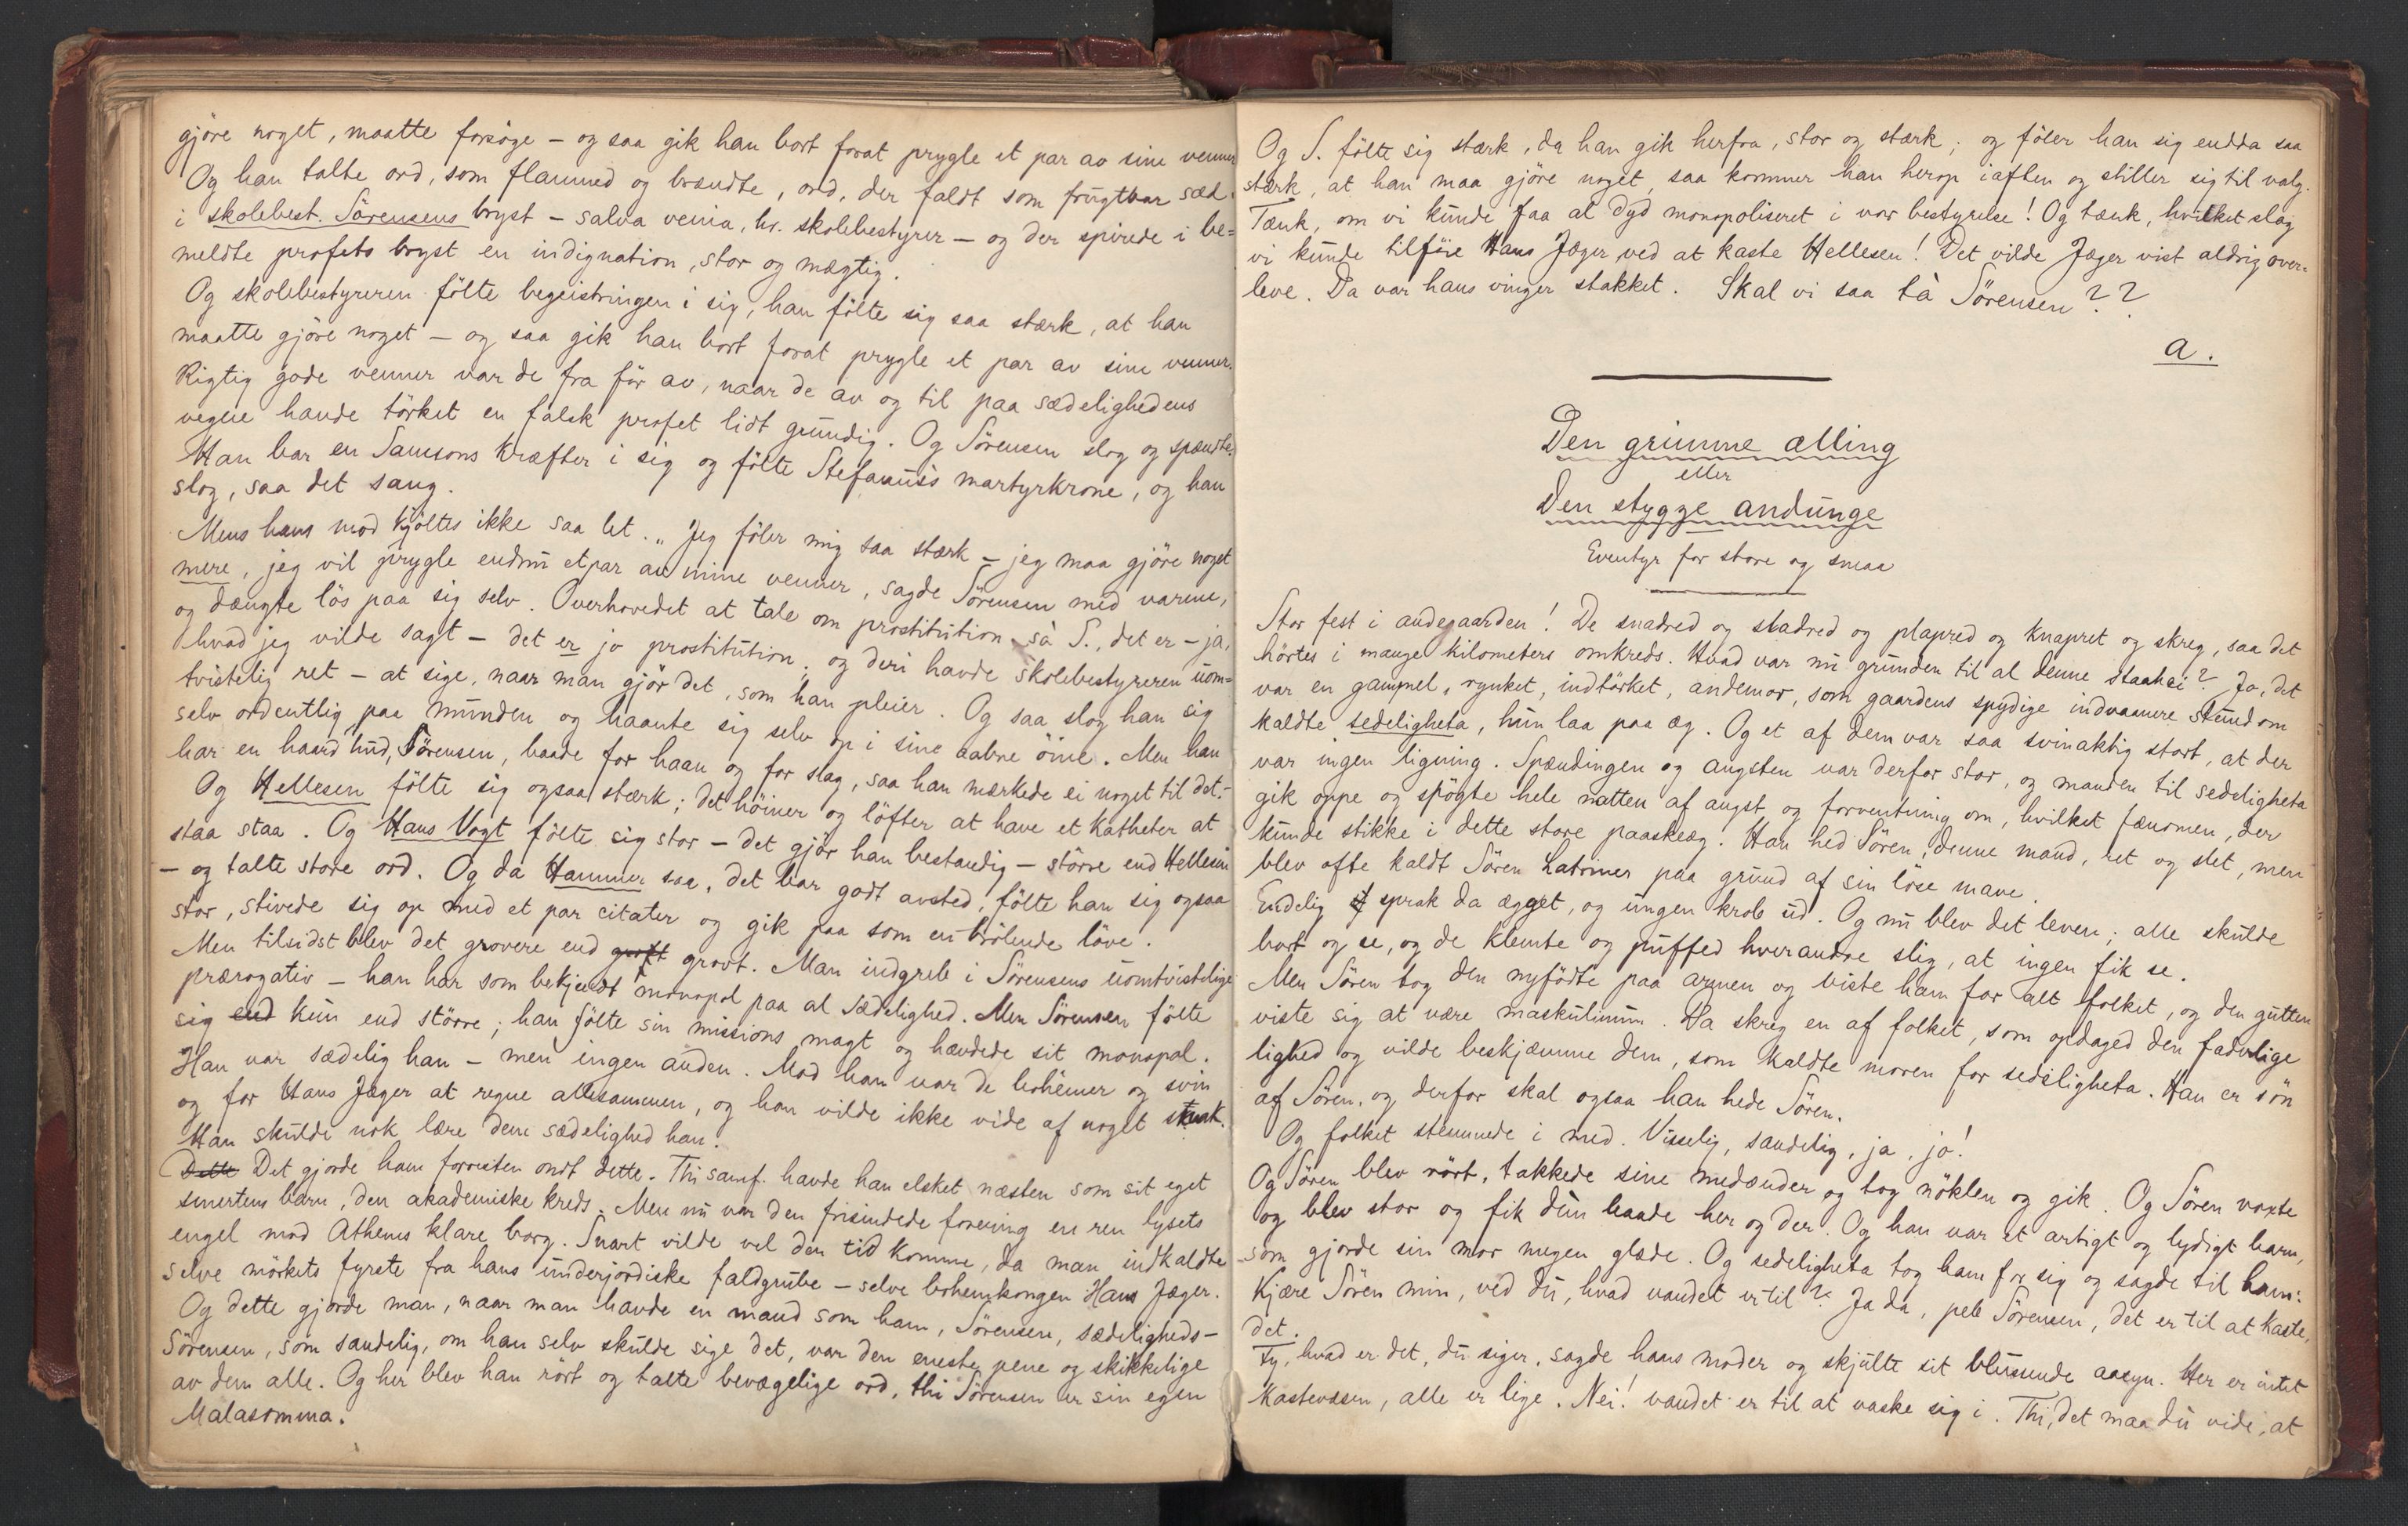 gjöre noget, maatte forsöge – og saa gik han bort forat prygle et par av sine venner
Og han talte ord, som flammed og brændte, ord, der faldt som frugtbar sæd
i skolebest. Sörensens bryst – salva venia, hr. skolebestyrer – og der spirede i be=
meldte profets bryst en indignation, stor og mægtig.
Og skolebestyreren fölte begeistringen i sig, han fölte sig saa stærk, at han
maatte gjöre noget – og saa gik han bort forat prygle et par av sine venner.
Rigtig gode venner var de fra för av, naar de av og til paa sædelighedens
vegne havde törket en falsk profet lidt grundig. Og Sörensen slog og spændte.
Han bar en Samsons kræfter i sig og fölte Stefanus's martyrkrone, og han
slog, saa det sang.
Mens hans mod kjöltes ikke saa let. „Jeg föler mig saa stærk – jeg maa gjöre noget
mere, jeg vil prygle endnu etpar av mine venner, sagde Sörensen med varme,
og dængte lös paa sig selv. Overhovedet at tale om prostitution, sà S., det er – ja,
hvad jeg vilde sagt – det er jo prostitution, og deri havde skolebestyreren uom=
tvistelig ret – at sige, naar man gjör det, som han pleier. Og saa slog han sig
selv ordentlig paa munden og haante sig selv op i sine aabne öine. Men han
har en haard hud, Sörensen, baade for haan og for slag, saa han mærkede ei noget til det.–
Og Hellesen fölte sig ogsaa stærk; det höiner og löfter at have et katheter at
staa staa. Og Hans Vogt fölte sig stor – det gjör han bestandig – större end Hellesen
– og talte store ord. Og da Hammer saa, det bar godt avsted, fölte han sig ogsaa
stor, stivede sig op med et par citater og gik paa som en brölende löve.
Men tilsidst blev det grovere end groft grovt. Man indgreb i Sörensens uomtvistelige
prærogativ – han har som bekjendt monopol paa al sædelighed. Men Sörensen fölte
sig end kun end större; han fölte sin missions magt og hævdede sit monopol.
Han var sædelig han – men ingen anden. Mod han var de bohêmer og svin
og for Hans Jæger at regne allesammen, og han vilde ikke vide af noget snak.
Han skulde nok lære dem sædelighed han.
Dette Det gjorde ham forresten ondt dette. Thi samf. havde han elsket næsten som sit eget
smertens barn, den akademiske kreds. Men nu var den frisindede forening en ren lysets
engel mod Athenes klare borg. Snart vilde vel den tid komme, da man indkaldte
selve mörkets fyrste fra hans underjordiske faldgrube – selve bohemkongen Hans Jæger.
Og dette gjorde man, naar man havde en mand som ham, Sörensen, sædeligheds–
Sörensen, som sandelig, om han selv skulde sige det, var den eneste pene og skikkelige
av dem alle. Og her blev han rört og talte bevægelige ord, thi Sörensen er sin egen
Malasomma.
Og S. fölte sig stærk, da han gik herfra, stor og stærk; og föler han sig endda saa
stærk, at han maa gjöre noget, saa kommer han herop iaften og stiller sig til valg.
Tænk, om vi kunde faa al dyd monopoliseret i vor bestyrelse! Og tænk, hvilket slag
vi kunde tilföie Hans Jæger ved at kaste Hellesen! Det vilde Jæger vist aldrig over=
leve. Da var hans vinger stakket. Skal vi saa tà Sörensen??
a.
Den grimme ælling
eller
Den stygge andunge
Eventyr for store og smaa
Stor fest i andegaarden! De snadred og skadred og plapred og knapret og skreg, saa det
hörtes i mange kilometers omkreds. Hvad var nu grunden til al denne staahei? Jo, det
var en gammel, rynket, indtörket, andemor, som gaardens spydige indvaanere stundom
kaldte sedeligheta, hun laa paa æg. Og et af dem var saa svinaktig stort, at der
var ingen ligning. Spændingen og angsten var derfor stor, og manden til sedeligheta
gik oppe og spögte hele natten af angst og forventning om, hvilket fænomen, der
kunde stikke i dette store paaskeæg. Han hed Sören, denne mand, ret og slet, men
blev ofte kaldt Sören Latriner paa grund af sin löse mave.
Endelig sprak da ægget, og ungen krob ud. Og nu blev det leven; alle skulde
bort og se, og de klemte og puffed hverandre slig, at ingen fik se.
Men Sören tog den nyfödte paa armen og viste ham for alt folket, og den gutten
viste sig at være maskulinum. Da skreg en af folket, som opdaged den faderlige
lighed og vilde beskjæmme dem, som kaldte moren for sedeligheta. Han er sön
af Sören, og derfor skal ogsaa han hede Sören.
Og folket stemmede i med. Visselig, sandelig, ja, jo!
Og Sören blev rört, takkede sine medænder og tog nöklen og gik. Og Sören voxte
og blev stor og fik dun baade her og der. Og han var et artigt og lydigt barn,
som gjorde sin mor megen glæde. Og sedeligheta tog ham for sig og sagde til ham:
Kjære Sören min, ved du, hvad vandet er til? Ja da, peb Sörensen, det er til at kaste,
det.
Fy, hvad er det, du siger, sagde hans moder og skjulte sit blussende aasyn. Her er intet
kastevæsen, alle er lige. Nei! vandet er til at vaske sig i. Thi, det maa du vide, at